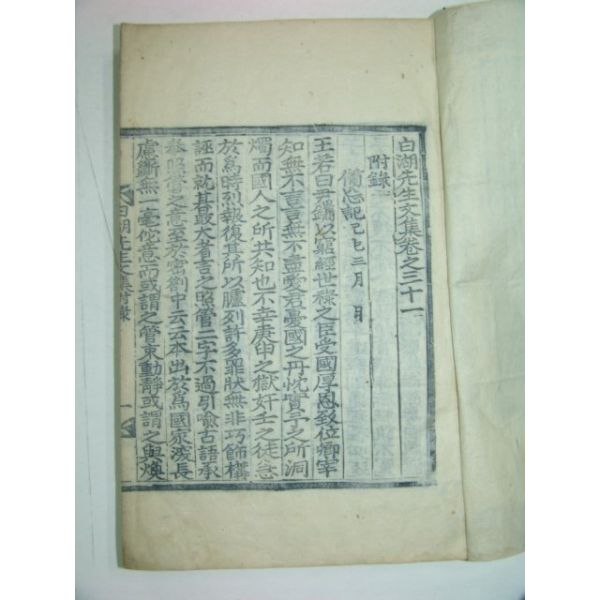 白湖先生文集卷之三十一
附錄一
備忘記己巳三月 日
王若曰尹鑴以窮經世祿之臣受國厚恩致位卿宰
知無不言言無不盡愛君憂國之丹忱實予之所洞
燭而國人之所共知也不幸庚申之獄奸壬之徒急
於爲時烈報復其所以臚列許多罪狀無非巧飾構
誣而就其最大者言之照管二字不過引喩古語承
於密劄中云云本出於爲國家深長
慮斷無一毫佗意而或謂之管束動靜或謂之與煥
白湖先生文集附錄
一